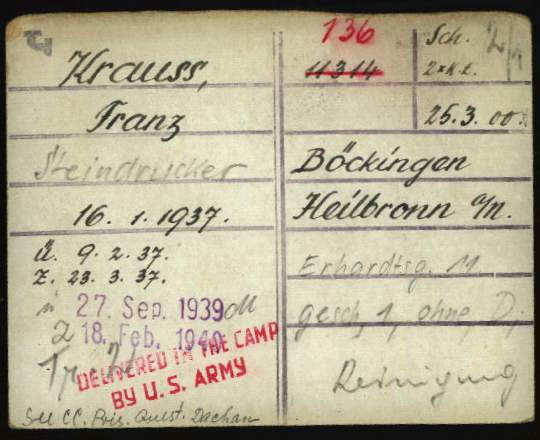 Krauss,
Franz
Steindrucker
16. 1. 1937.
Ü. 9. 2. 37.
Z. 23. 3. 37.
27. Sep. 1939
2 18. Feb. 1940
DELIVERED IN THE CAMP
BY U. S. ARMY
See CC. Pris. Quest. Dachau
136
11314
Sch.
2xK.L.
25. 3. 00.
Böckingen
Heilbronn a/N.
Erhardtsg. 11
gesch, 1, ohne,
Reinigung